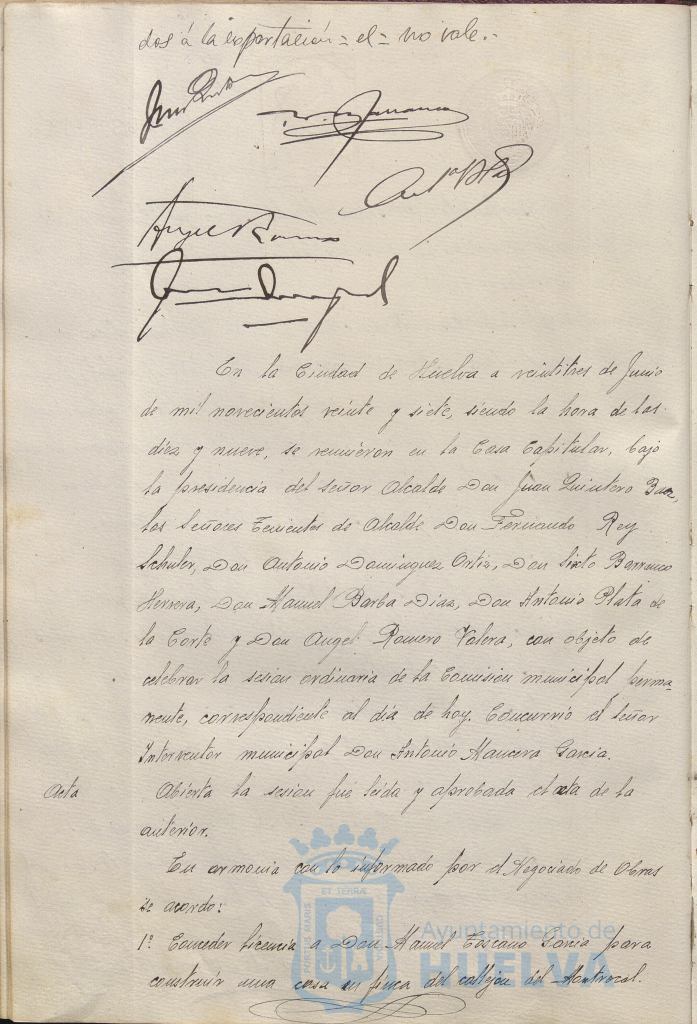 dos á la exportación = el = no vale.-
Angel Romero
En la Ciudad de Huelva a veintitres de Junio
de mil novecientos veinte y siete, siendo la hora de las
diez y nueve, se reunieron en la Casa Capitular, bajo
la presidencia del señor Alcalde Don Juan Quintero Baez,
los Señores Tenientes de Alcalde Don Fernando Rey
Schuler, Don Antonio Dominguez Ortiz, Don Sixto Barranco
Herrera, Don Manuel Barba Diaz, Don Antonio Plata de
la Corte y Don Angel Romero Valera, con objeto de
celebrar la sesion ordinaria de la Comisión municipal perma-
nente, correspondiente al dia de hoy. Concurrió el señor
Interventor municipal Don Antonio Mancera Garcia.
Acta
Abierta la sesion fué leida y aprobada el acta de la
anterior.
En armonia con lo informado por el Negociado de Obras
se acordó:
1º Conceder licencia a Don Manuel Toscano Garcia para
construir una casa en finca del callejon del Montrocal.
PORTUS MARIS ET TERRAE CUSTODIA
Ayuntamiento de
HUELVA